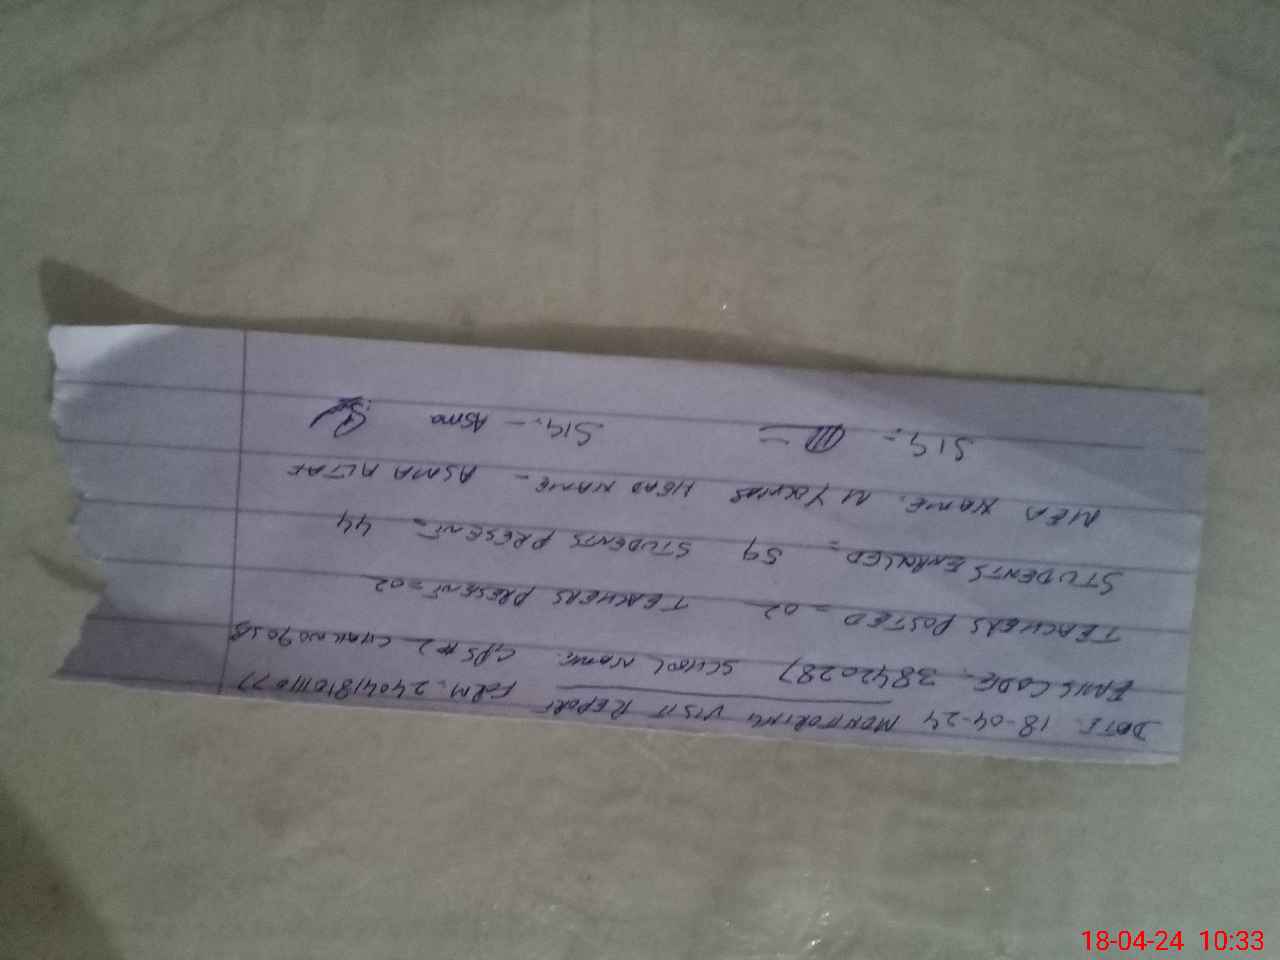 DATE 18-04-24 MONITORING VISIT REPORT FORM. 24041810111077
EMIS CODE. 38420287 SCHOOL NAME. GPS #2 CHAK NO 90 SB
TEACHERS POSTED = 02 TEACHERS PRESENT = 02
STUDENTS ENROLLED = 59 STUDENTS PRESENT = 44
MEA NAME. M YOUNAS HEAD NAME - ASMA ALTAF
SIG = SIG. - Asma
18-04-24 10:33